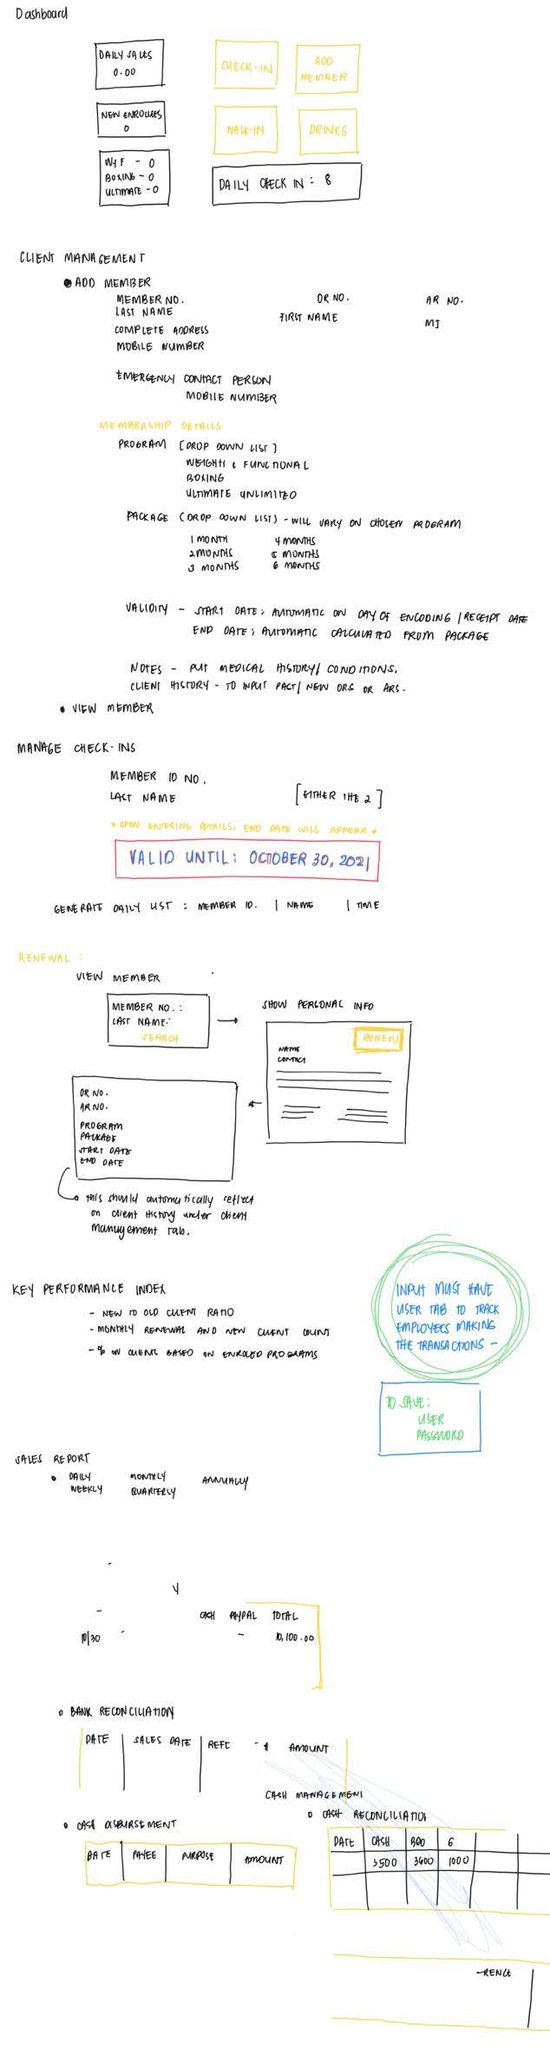 Dashboard
DAILY SALES
0.00
CHECK-IN
ADD
MEMBER
NEW ENROLLEES
0
WALK-IN
DRINKS
W/F - 0
BOXING - 0
ULTIMATE - 0
DAILY CHECK IN : 8
CLIENT MANAGEMENT
• ADD MEMBER
MEMBER NO. OR NO. AR NO.
LAST NAME FIRST NAME MI
COMPLETE ADDRESS
MOBILE NUMBER
EMERGENCY CONTACT PERSON
MOBILE NUMBER
MEMBERSHIP DETAILS
PROGRAM [DROP DOWN LIST]
WEIGHTS & FUNCTIONAL
BOXING
ULTIMATE UNLIMITED
PACKAGE (DROP DOWN LIST) - WILL VARY ON CHOSEN PROGRAM
1 MONTH 4 MONTHS
2 MONTHS 5 MONTHS
3 MONTHS 6 MONTHS
VALIDITY - START DATE; AUTOMATIC ON DAY OF ENCODING / RECEIPT DATE
END DATE; AUTOMATIC CALCULATED FROM PACKAGE
NOTES - PUT MEDICAL HISTORY/ CONDITIONS.
CLIENT HISTORY - TO INPUT PAST/ NEW ORS OR ARS.
• VIEW MEMBER
MANAGE CHECK-INS
MEMBER ID NO.
LAST NAME [EITHER THE 2]
* UPON ENTERING DETAILS, END DATE WILL APPEAR *
VALID UNTIL: OCTOBER 30, 2021
GENERATE DAILY LIST : MEMBER ID. | NAME | TIME
RENEWAL :
VIEW MEMBER
MEMBER NO. :
LAST NAME:
SEARCH
SHOW PERSONAL INFO
RENEW
NAME
CONTACT
OR NO.
AR NO.
PROGRAM
PACKAGE
START DATE
END DATE
this should automatically reflect
on client history under client
management tab.
KEY PERFORMANCE INDEX
- NEW TO OLD CLIENT RATIO
- MONTHLY RENEWAL AND NEW CLIENT COUNT
- % ON CLIENT BASED ON ENROLED PROGRAMS
INPUT MUST HAVE
USER TAB TO TRACK
EMPLOYEES MAKING
THE TRANSACTIONS -
TO SAVE:
USER
PASSWORD
SALES REPORT
• DAILY MONTHLY ANNUALLY
WEEKLY QUARTERLY
CASH PAYPAL TOTAL
10/30 - - 10,100.00
• BANK RECONCILIATION
DATE SALES DATE REFE AMOUNT
CASH MANAGEMENT
• CASH DISBURSEMENT
DATE PAYEE PURPOSE AMOUNT
• CASH RECONCILIATION
DATE CASH BDO G
5500 3600 1000
RENCE